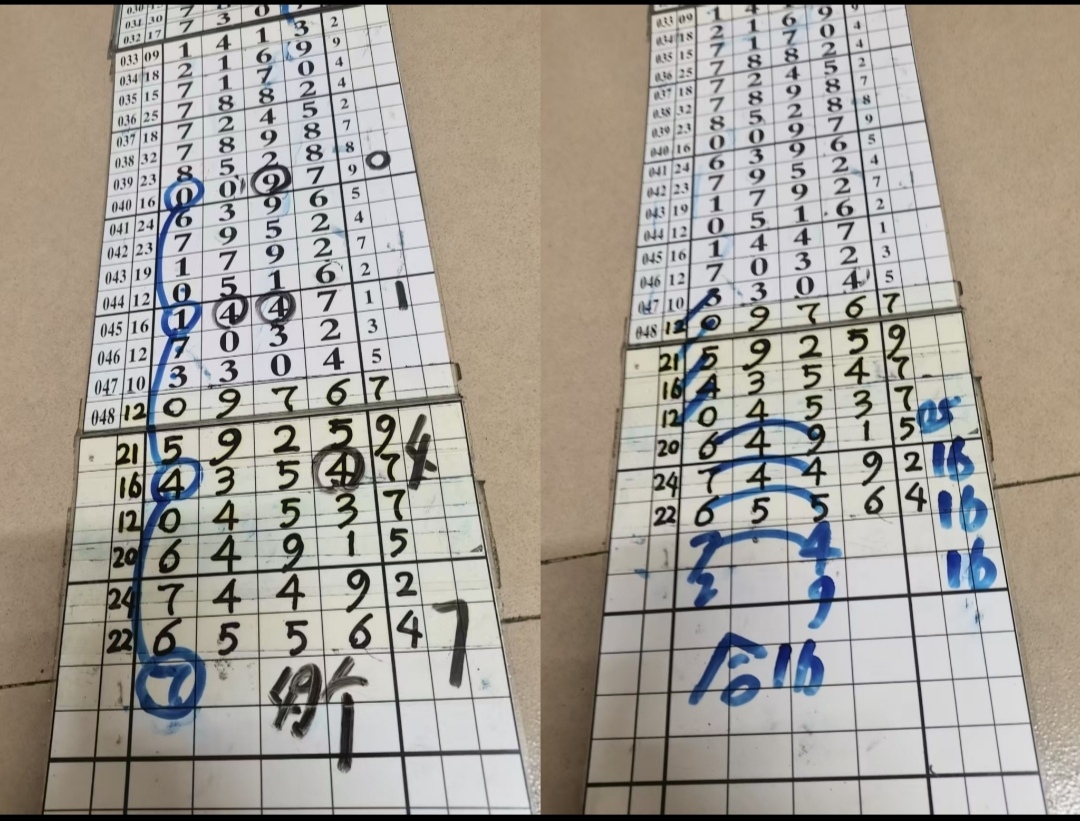 032 17 7 3 0
033 09 1 4 1 3
034 18 2 1 6 9 9
035 15 7 1 7 0 4
036 25 7 8 8 2 4
037 18 7 2 4 5 2
038 32 7 8 9 8 7
039 23 8 5 2 8 8
040 16 0 0 9 7 9 0
041 24 6 3 9 6 5
042 23 7 9 5 2 4
043 19 1 7 9 2 7
044 12 0 5 1 6 2
045 16 1 4 4 7 1 1
046 12 7 0 3 2 3
047 10 3 3 0 4 5
048 12 0 9 7 6 7
21 5 9 2 5 9
16 4 3 5 4 7 4
12 0 4 5 3 7
20 6 4 9 1 5
24 7 4 4 9 2
22 6 5 5 6 4
7 7
033 09 1 4
034 18 2 1 6 9 9
035 15 7 1 7 0 4
036 25 7 8 8 2 4
037 18 7 2 4 5 2
038 32 7 8 9 8 7
039 23 8 5 2 8 8
040 16 0 0 9 7 9
041 24 6 3 9 6 5
042 23 7 9 5 2 4
043 19 1 7 9 2 7
044 12 0 5 1 6 2
045 16 1 4 4 7 1
046 12 7 0 3 2 3
047 10 3 3 0 4 5
048 12 0 9 7 6 7
21 5 9 2 5 9
16 4 3 5 4 7
12 0 4 5 3 7
20 6 4 9 1 5
24 7 4 4 9 2 16
22 6 5 5 6 4 16
7 4 16
2 9
合16